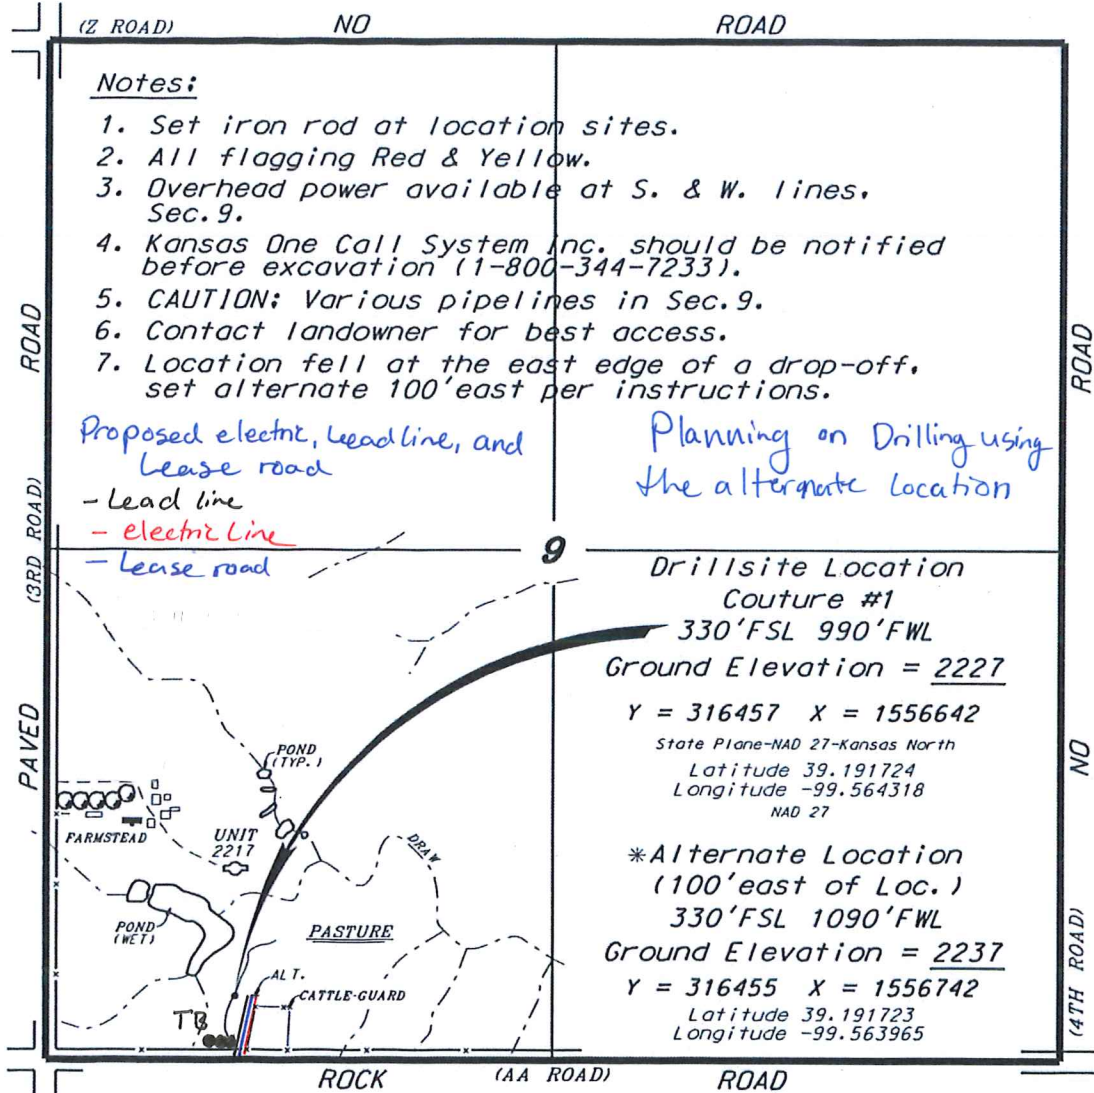 (Z ROAD) NO ROAD
Notes:
1. Set iron rod at location sites.
2. All flagging Red & Yellow.
3. Overhead power available at S. & W. lines,
Sec.9.
4. Kansas One Call System Inc. should be notified
before excavation (1-800-344-7233).
5. CAUTION: Various pipelines in Sec.9.
6. Contact landowner for best access.
7. Location fell at the east edge of a drop-off,
set alternate 100'east per instructions.
ROAD
ROAD
Proposed electric, Lead line, and
Lease road
- Lead line
- electric Line
- Lease road
Planning on Drilling using
the alternate Location
(3RD ROAD)
PAVED
9
Drillsite Location
Couture #1
330'FSL 990'FWL
Ground Elevation = 2227
Y = 316457 X = 1556642
State Plane-NAD 27-Kansas North
Latitude 39.191724
Longitude -99.564318
NAD 27
NO
*Alternate Location
(100'east of Loc.)
330'FSL 1090'FWL
Ground Elevation = 2237
Y = 316455 X = 1556742
Latitude 39.191723
Longitude -99.563965
(4TH ROAD)
POND
(TYP.)
FARMSTEAD
UNIT
2217
DRAW
POND
(WET)
PASTURE
ALT.
CATTLE-GUARD
TB
ROCK (AA ROAD) ROAD